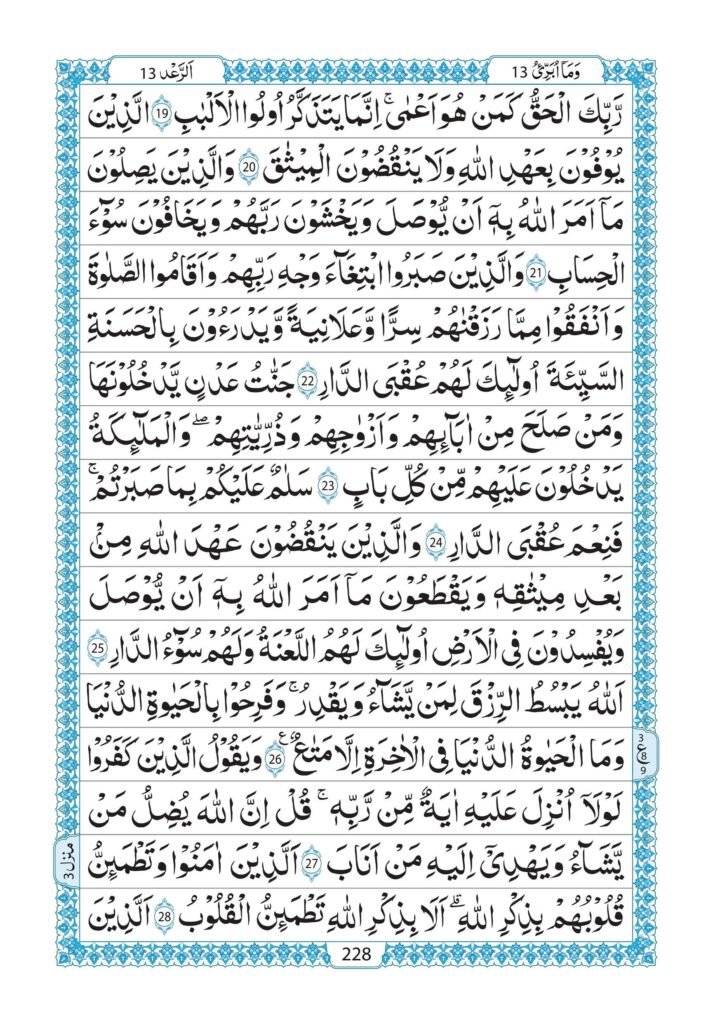 وَمَاۤ اُبَرِّئُ 13
اَلرَّعْد 13
رَّبِّكَ الْحَقُّ كَمَنْ هُوَ اَعْمٰى ؕ اِنَّمَا يَتَذَكَّرُ اُولُوا الْاَلْبٰبِ 19 الَّذِيْنَ
يُوْفُوْنَ بِعَهْدِ اللّٰهِ وَلَا يَنْقُضُوْنَ الْمِيْثٰقَ 20 وَالَّذِيْنَ يَصِلُوْنَ
مَاۤ اَمَرَ اللّٰهُ بِهٖۤ اَنْ يُّوْصَلَ وَيَخْشَوْنَ رَبَّهُمْ وَيَخَافُوْنَ سُوْٓءَ
الْحِسَابِ 21 وَالَّذِيْنَ صَبَرُوا ابْتِغَآءَ وَجْهِ رَبِّهِمْ وَاَقَامُوا الصَّلٰوةَ
وَاَنْفَقُوْا مِمَّا رَزَقْنٰهُمْ سِرًّا وَّعَلَانِيَةً وَّيَدْرَءُوْنَ بِالْحَسَنَةِ
السَّيِّئَةَ اُولٰٓئِكَ لَهُمْ عُقْبَى الدَّارِ 22 جَنّٰتُ عَدْنٍ يَّدْخُلُوْنَهَا
وَمَنْ صَلَحَ مِنْ اٰبَآئِهِمْ وَاَزْوٰجِهِمْ وَذُرِّيّٰتِهِمْ ۖ وَالْمَلٰٓئِكَةُ
يَدْخُلُوْنَ عَلَيْهِمْ مِّنْ كُلِّ بَابٍ 23 سَلٰمٌ عَلَيْكُمْ بِمَا صَبَرْتُمْ ۚ
فَنِعْمَ عُقْبَى الدَّارِ 24 وَالَّذِيْنَ يَنْقُضُوْنَ عَهْدَ اللّٰهِ مِنْۢ
بَعْدِ مِيْثٰقِهٖ وَيَقْطَعُوْنَ مَاۤ اَمَرَ اللّٰهُ بِهٖۤ اَنْ يُّوْصَلَ
وَيُفْسِدُوْنَ فِى الْاَرْضِ اُولٰٓئِكَ لَهُمُ اللَّعْنَةُ وَلَهُمْ سُوْٓءُ الدَّارِ 25
اَللّٰهُ يَبْسُطُ الرِّزْقَ لِمَنْ يَّشَآءُ وَيَقْدِرُ ۚ وَفَرِحُوْا بِالْحَيٰوةِ الدُّنْيَا
وَمَا الْحَيٰوةُ الدُّنْيَا فِى الْاٰخِرَةِ اِلَّا مَتٰعٌ 26 ع وَيَقُوْلُ الَّذِيْنَ كَفَرُوْا
3
ع
8
9
لَوْلَاۤ اُنْزِلَ عَلَيْهِ اٰيَةٌ مِّنْ رَّبِّهٖ ۚ قُلْ اِنَّ اللّٰهَ يُضِلُّ مَنْ
يَّشَآءُ وَيَهْدِىْۤ اِلَيْهِ مَنْ اَنَابَ 27 اَلَّذِيْنَ اٰمَنُوْا وَتَطْمَئِنُّ
منزل 3
قُلُوْبُهُمْ بِذِكْرِ اللّٰهِ ۗ اَلَا بِذِكْرِ اللّٰهِ تَطْمَئِنُّ الْقُلُوْبُ 28 اَلَّذِيْنَ
228